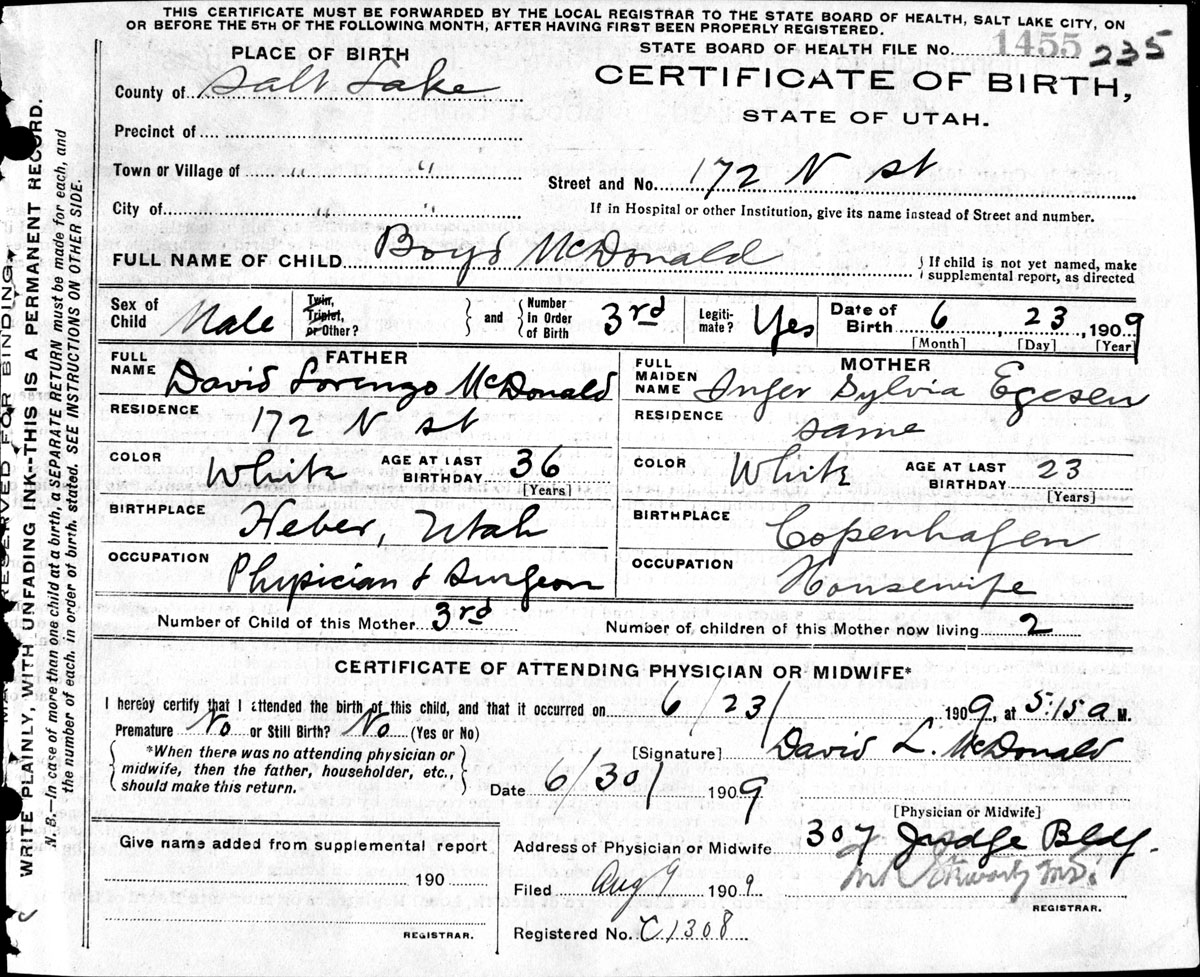 THIS CERTIFICATE MUST BE FORWARDED BY THE LOCAL REGISTRAR TO THE STATE BOARD OF HEALTH, SALT LAKE CITY, ON
OR BEFORE THE 5TH OF THE FOLLOWING MONTH, AFTER HAVING FIRST BEEN PROPERLY REGISTERED.
STATE BOARD OF HEALTH FILE NO. 1455 235
PLACE OF BIRTH
CERTIFICATE OF BIRTH,
STATE OF UTAH.
County of Salt Lake
Precinct of
Town or Village of " "
Street and No. 172 N st
City of " "
If in Hospital or other Institution, give its name instead of Street and number.
FULL NAME OF CHILD Boyd McDonald
If child is not yet named, make
supplemental report, as directed
Sex of Child Male
Twin, Triplet, or Other?
and
Number in Order of Birth 3rd
Legiti-mate? Yes
Date of Birth 6 23, 1909
[Month] [Day] [Year]
FATHER
FULL NAME David Lorenzo McDonald
RESIDENCE 172 N st
COLOR White AGE AT LAST BIRTHDAY 36
[Years]
BIRTHPLACE Heber, Utah
OCCUPATION Physician & Surgeon
MOTHER
FULL MAIDEN NAME Inger Sylvia Egesen
RESIDENCE same
COLOR White AGE AT LAST BIRTHDAY 23
[Years]
BIRTHPLACE Copenhagen
OCCUPATION Housewife
Number of Child of this Mother 3rd
Number of children of this Mother now living 2
CERTIFICATE OF ATTENDING PHYSICIAN OR MIDWIFE*
I hereby certify that I attended the birth of this child, and that it occurred on 6/23/ 1909, at 5:15 a M.
Premature No or Still Birth? No (Yes or No)
*When there was no attending physician or
midwife, then the father, householder, etc.,
should make this return.
[Signature] David L. McDonald
Date 6/30/ 1909
[Physician or Midwife]
Give name added from supplemental report
190
REGISTRAR.
Address of Physician or Midwife 307 Judge Bldg.
Filed Aug 9 1909
REGISTRAR.
Registered No. C1308
MARGIN RESERVED FOR BINDING
WRITE PLAINLY, WITH UNFADING INK--THIS IS A PERMANENT RECORD.
N. B.—In case of more than one child at a birth, a SEPARATE RETURN must be made for each, and
the number of each, in order of birth, stated. SEE INSTRUCTIONS ON OTHER SIDE.